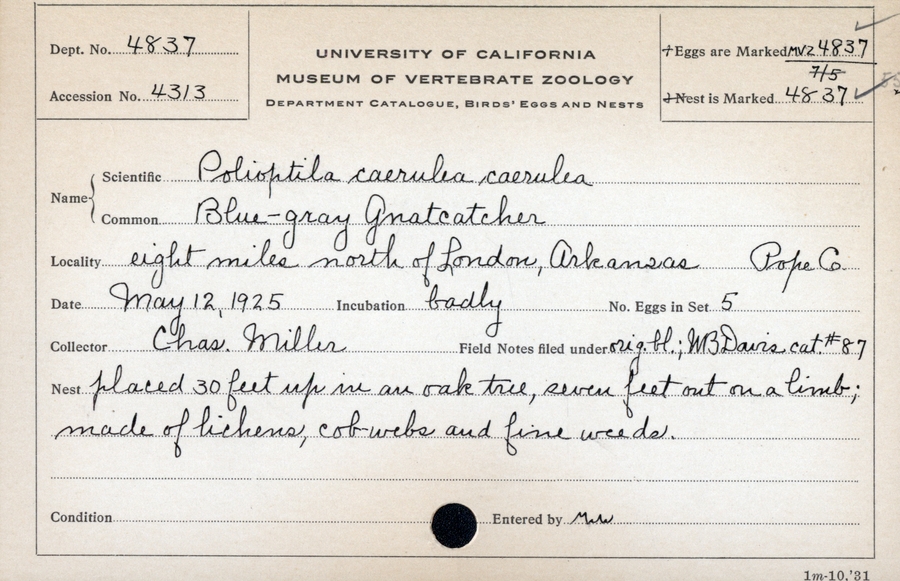 Dept. No. 4837
Accession No. 4313
UNIVERSITY OF CALIFORNIA
MUSEUM OF VERTEBRATE ZOOLOGY
DEPARTMENT CATALOGUE, BIRDS' EGGS AND NESTS
Eggs are Marked MVZ 4837
7/5
Nest is Marked 4837
Name
Scientific Polioptila caerulea caerulea
Common Blue-gray Gnatcatcher
Locality eight miles north of London, Arkansas Pope Co.
Date May 12, 1925 Incubation badly No. Eggs in Set 5
Collector Chas. Miller Field Notes filed under orig. bl.; WB Davis cat. # 87
Nest placed 30 feet up in an oak tree, seven feet out on a limb;
made of lichens, cob-webs and fine weeds.
Condition Entered by
1m-10,'31